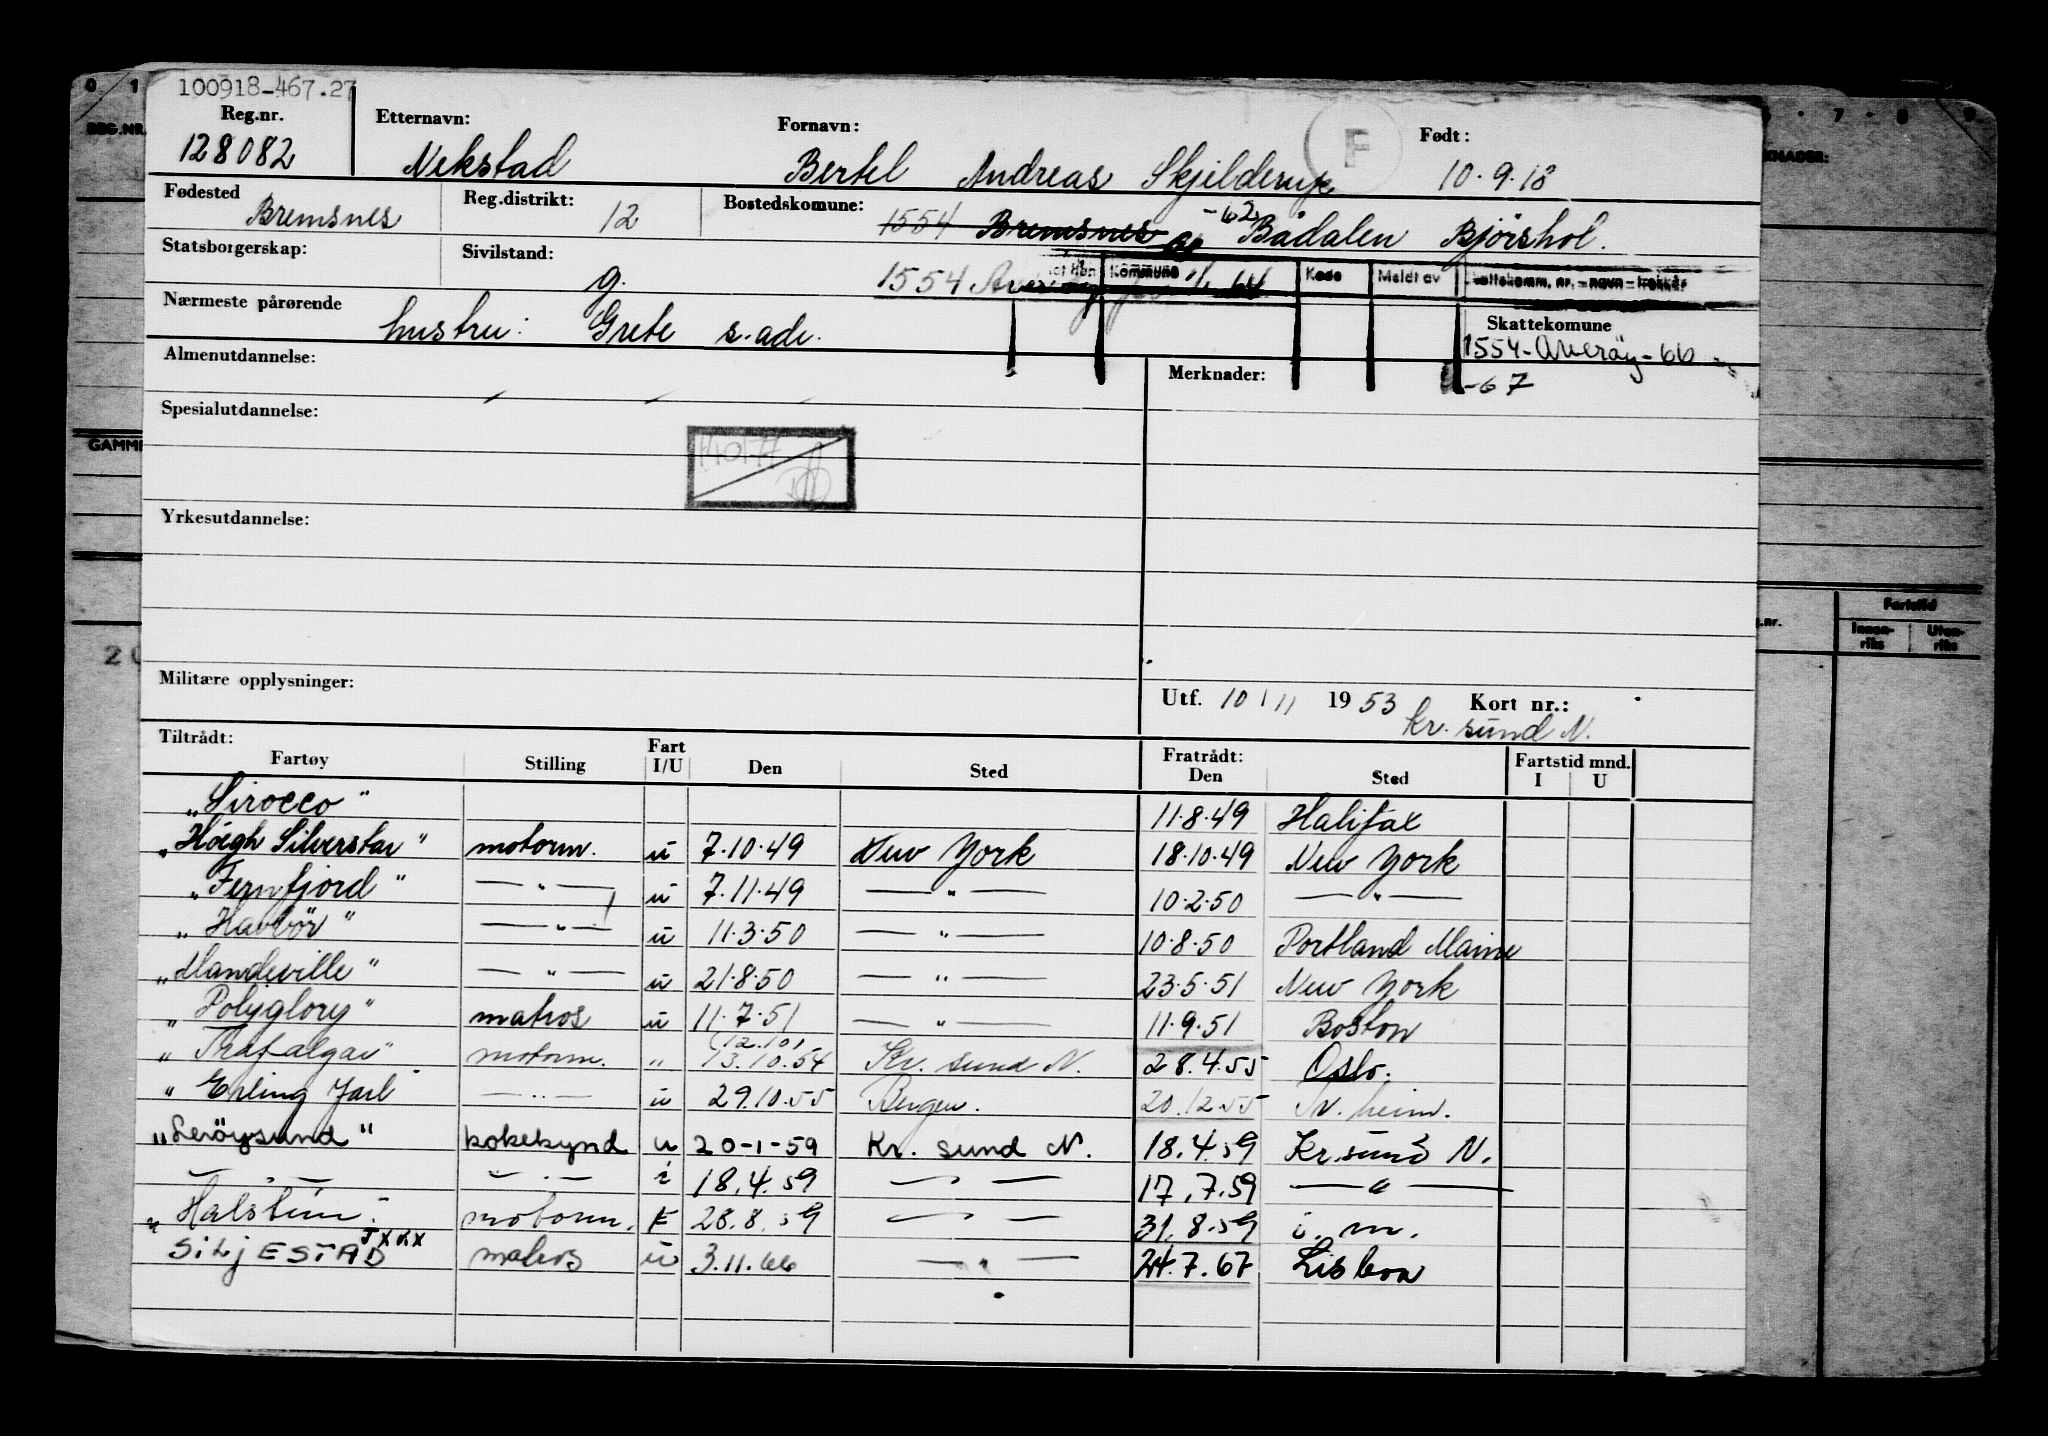 100918-467.27
Reg.nr. Etternavn: Fornavn: F Født:
128082 Nekstad Bertel Andreas Skjelderup 10.9.18
Fødested Reg.distrikt: Bostedskomune:
Bremsnes 12 1554 Bremsnes -62 Bådalen Bjørshol.
Statsborgerskap: Sivilstand:
g. 1554 Averøy 1/1 64
Kommune Kode Meldt av Skattekomm. nr. - navn - trekkår
Nærmeste pårørende Skattekomune
hustru: Grete s. adr. 1554-Averøy-66
-67
Almenutdannelse: Merknader:
Spesialutdannelse:
Yrkesutdannelse:
Militære opplysninger:
Utf. 10/11 1953 Kort nr.:
Kr. sund N.
Tiltrådt: Fratrådt: Fartstid mnd.
Fartøy Stilling Fart I/U Den Sted Den Sted I U
"Sirocco" 11.8.49 Halifax
"Höegh Silverstar" motorm. u 7.10.49 New York 18.10.49 New York
"Fernfjord" — " — u 7.11.49 — " — 10.2.50 — " —
"Havbör" — " — u 11.3.50 — " — 10.8.50 Portland Maine
"Mandeville" — " — u 21.8.50 — " — 23.5.51 New York
"Polyglory" matros u 11.7.51 — " — 11.9.51 Boston
(12.10)
"Trafalgar" motorm. " 13.10.54 Kr. sund N. 28.4.55 Oslo.
"Erling Jarl — " — u 29.10.55 Bergen. 20.12.55 Tr. heim.
"Lerøysund" kokekynd u 20-1-59 Kr. sund N. 18.4.59 Kr.sund N.
— " — — " — i 18.4.59 — " — 17.7.59 — " —
"Halstein" motorm. F 28.8.59 — " — 31.8.59 i. m.
SILJESTAD JXXX matros u 3.11.66 — " — 24.7.67 Lisboa
REG.NR.
GAMM
7 8 9
KNADER:
Fartstid
Innenriks Utenriks